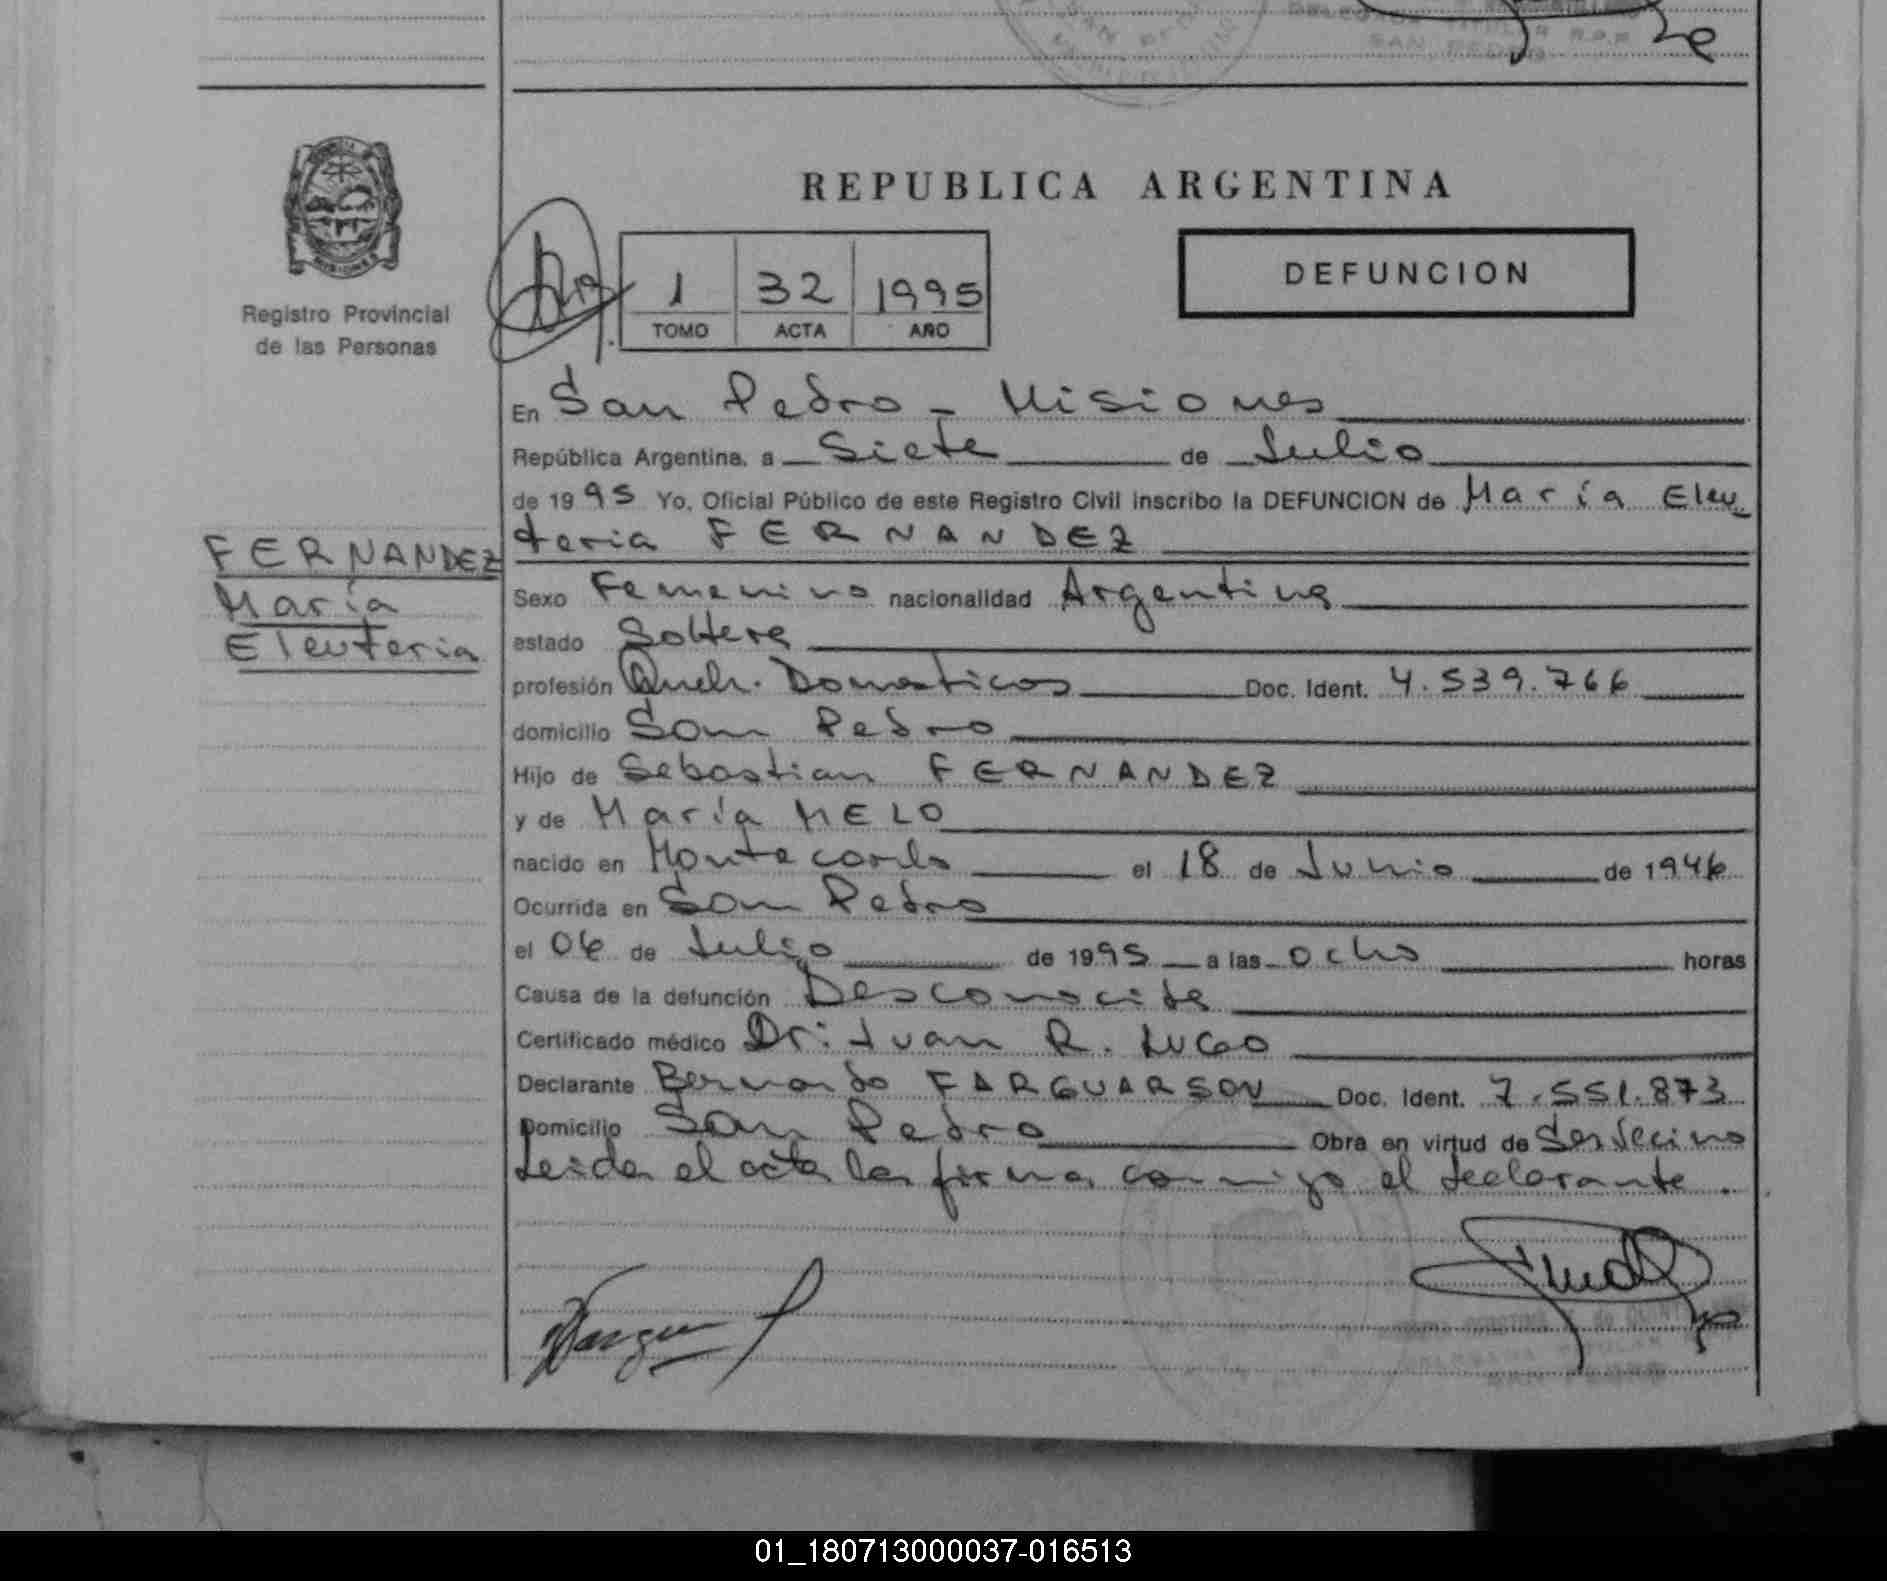 SAN PEDRO
REPUBLICA ARGENTINA
1 32 1995
TOMO ACTA AÑO
DEFUNCION
MISIONES
Registro Provincial
de las Personas
En San Pedro - Misiones
República Argentina, a Siete de Julio
de 1995 Yo, Oficial Público de este Registro Civil inscribo la DEFUNCION de María Eleu
teria FERNANDEZ
FERNANDEZ
María
Eleuteria
Sexo Femenino nacionalidad Argentina
estado Soltera
profesión Queh. Domesticos Doc. Ident. 4.539.766
domicilio San Pedro
Hijo de Sebastian FERNANDEZ
y de María MELO
nacido en Montecarlo el 18 de Junio de 1946
Ocurrida en San Pedro
el 06 de Julio de 1995 a las ocho horas
Causa de la defunción Desconocida
Certificado médico Dr: Juan R. LUGO
Declarante Bernardo FARGUARSON Doc. Ident. 7.551.873
Domicilio San Pedro Obra en virtud de Ser Vecino
Leida el acta la firma conmigo el declarante.
01_180713000037-016513